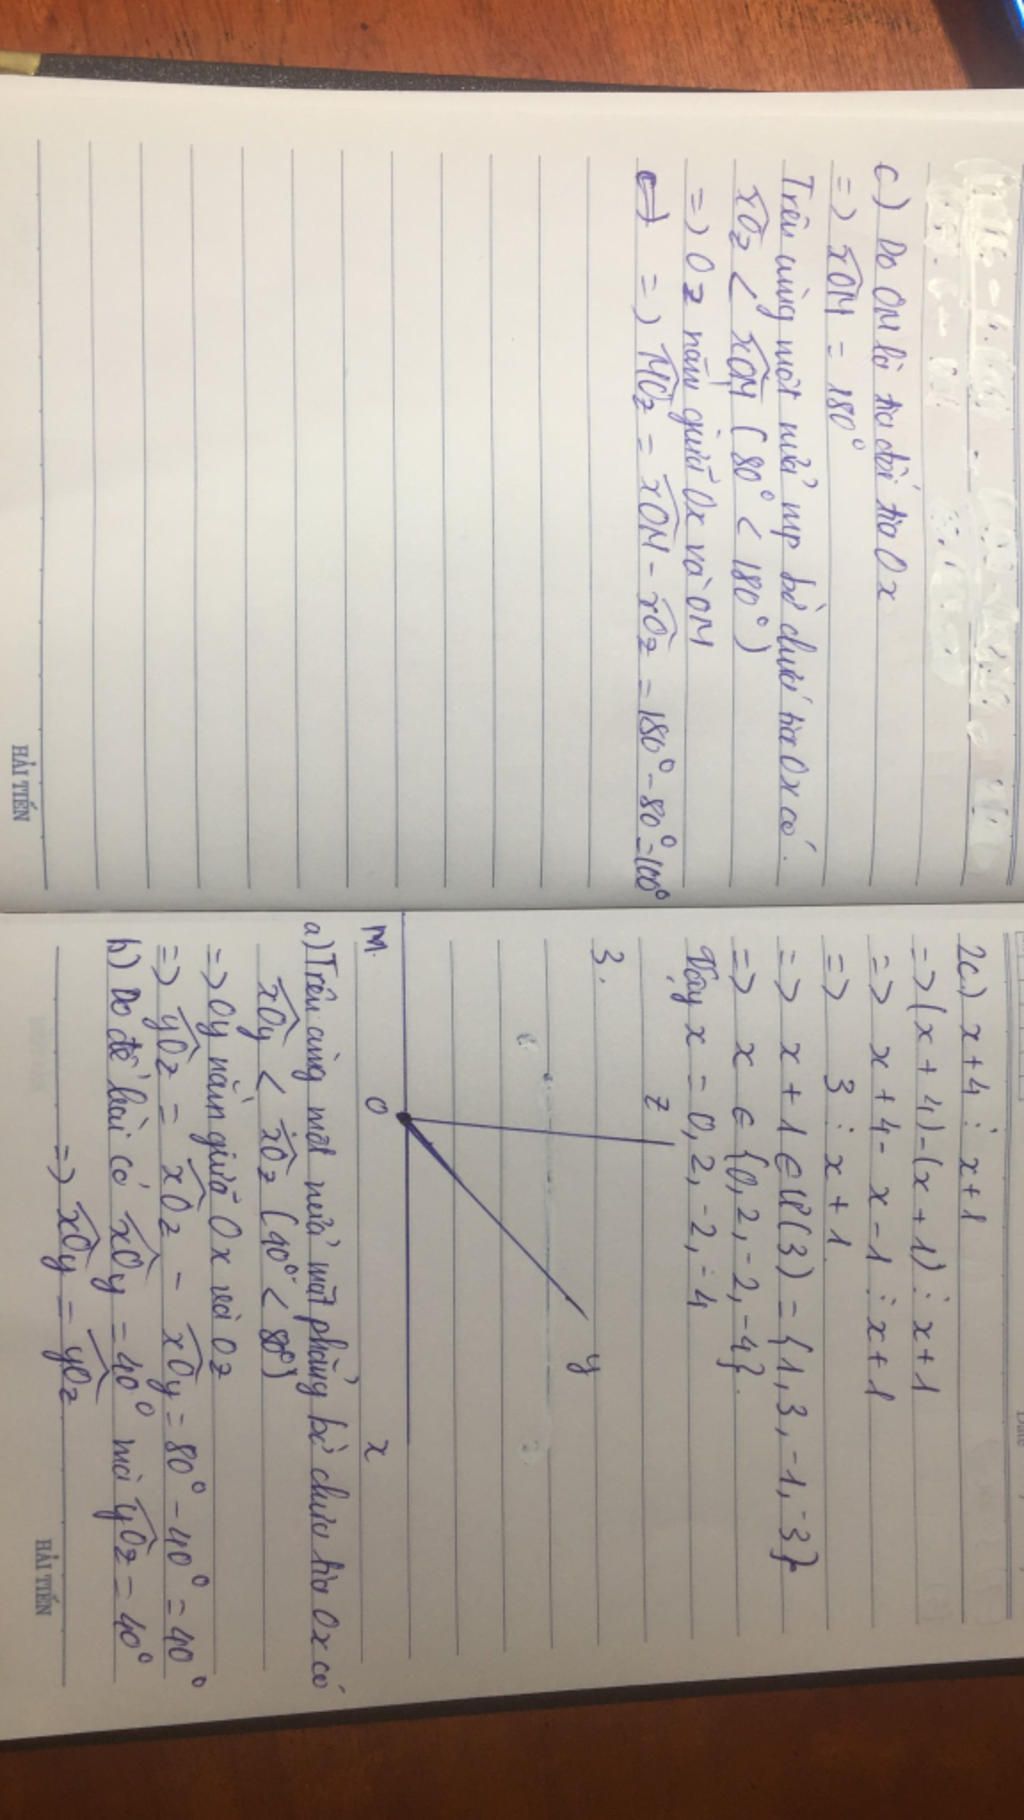 c) Do OM là tia đối tia Ox
=> xOM = 180°
Trên cùng một nửa mp bờ chứa tia Ox có.
xOz < xOM (80° < 180°)
=> Oz nằm giữa Ox và OM
=> MOz = xOM - xOz = 180° - 80° = 100°
HẢI TIẾN
Date
2c) x+4 ⋮ x+1
=> (x+4)-(x+1) ⋮ x+1
=> x+4-x-1 ⋮ x+1
=> 3 ⋮ x+1.
=> x+1 ∈ Ư(3) = {1,3,-1,-3}
=> x ∈ {0,2,-2,-4}.
Vậy x = 0,2,-2,-4
3.
z
y
M
O
x
a) Trên cùng một nửa mặt phẳng bờ chứa tia Ox có
xOy < xOz (40° < 80°)
=> Oy nằm giữa Ox và Oz
=> yOz = xOz - xOy = 80° - 40° = 40°
b) Do đề bài có xOy = 40° mà yOz = 40°
=> xOy = yOz
HẢI TIẾN